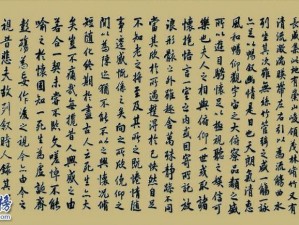 清流激湍暎帶左右引以為流觴曲水
列坐其次雖無絲竹管弦之盛一觴一詠
亦足以暢敘幽情是日也天朗氣清惠
風和暢仰觀宇宙之大俯察品類之盛
所以遊目騁懷足以極視聽之娛信可
樂也夫人之相與俯仰一世或取諸
懷抱悟言一室之內或因寄所託放
浪形骸之外雖趣舍萬殊靜躁不同
當其欣於所遇暫得於己快然自足
不知老之將至及其所之既倦情隨
事遷感慨係之矣向之所欣俛仰之
間以為陳迹猶不能不以之興懷況
脩短隨化終期於盡古人云死生亦大
矣豈不痛哉每攬昔人興感之由
若合一契未嘗不臨文嗟悼不能喻
之於懷固知一死生為虛誕齊
彭殤為妄作後之視今亦由今之
視昔悲夫故列敘時人錄其